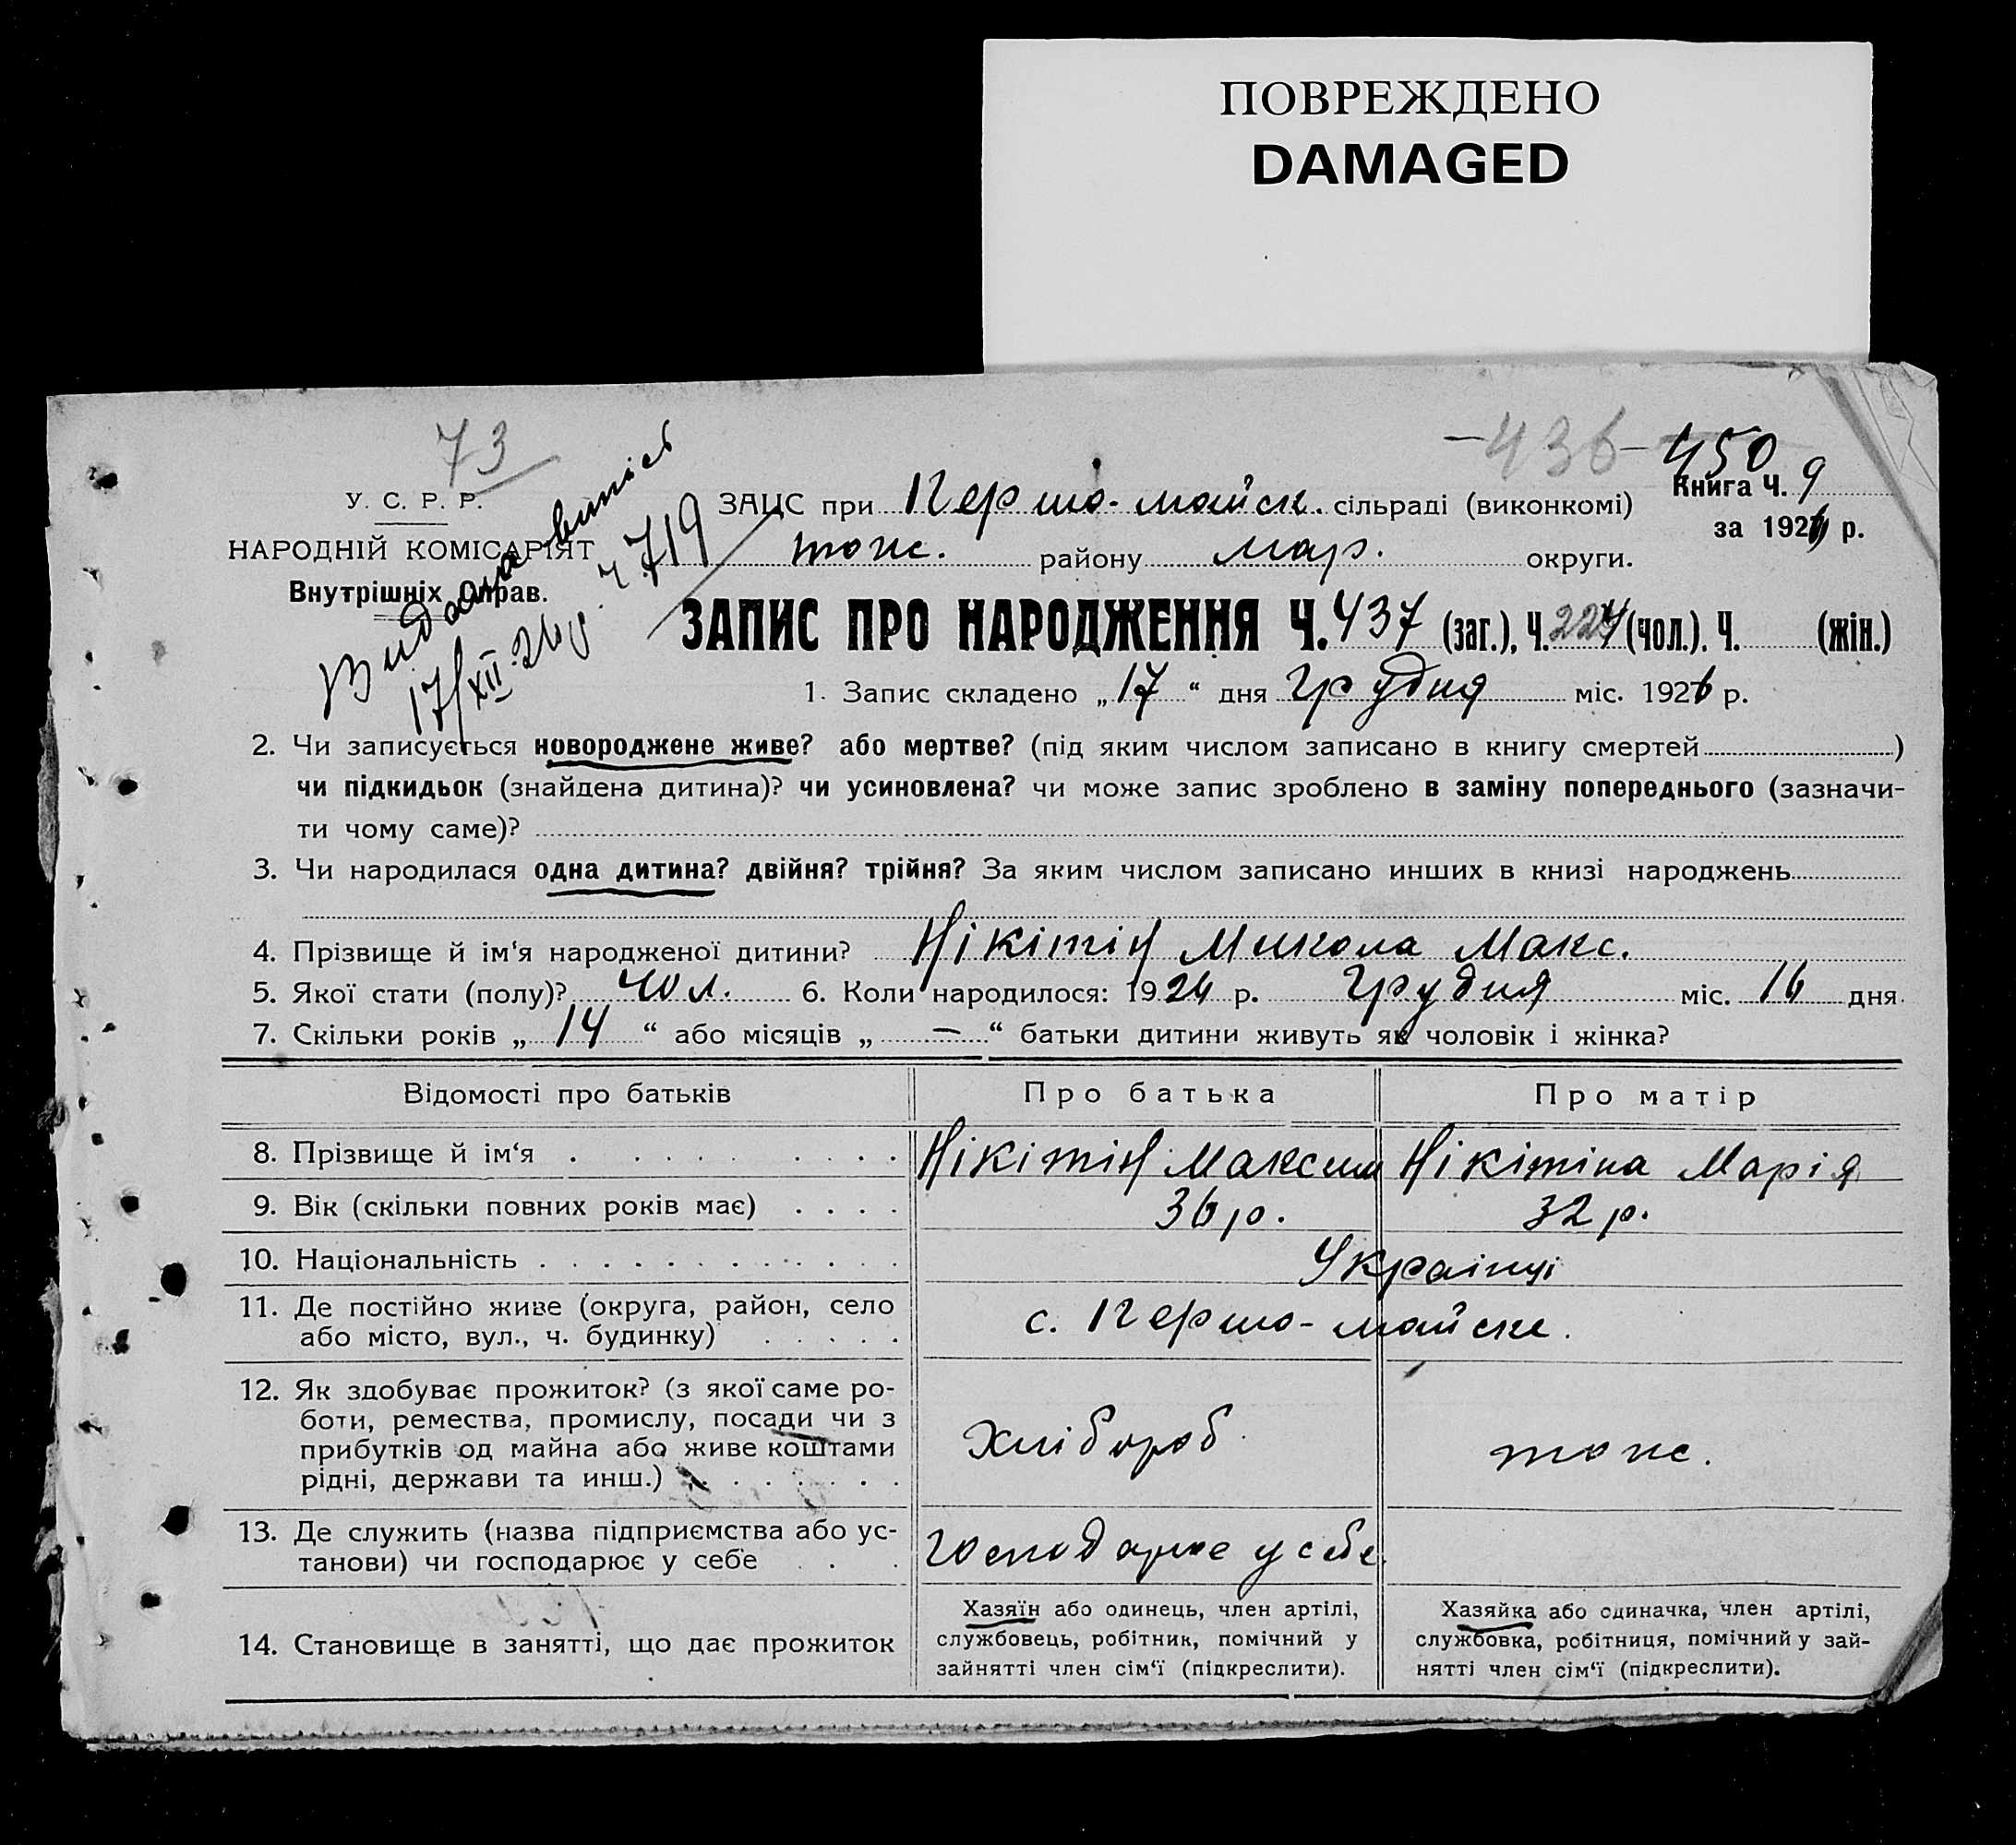 ПОВРЕЖДЕНО
DAMAGED
73
-436-
450
У. С. Р. Р.
НАРОДНІЙ КОМІСАРІЯТ
Внутрішніх Справ.
Видана випись
17/XII-26р. ч. 719
ЗАЦС при Першо-майск. сільраді (виконкомі)
Книга Ч. 9
за 1926 р.
тож. району мар. округи.
ЗАПИС ПРО НАРОДЖЕННЯ Ч. 437 (заг.), Ч. 224 (чол.), Ч. (жін.)
1. Запис складено „17“ дня Грудня міс. 1926 р.
2. Чи записується новороджене живе? або мертве? (під яким числом записано в книгу смертей )
чи підкидьок (знайдена дитина)? чи усиновлена? чи може запис зроблено в заміну попереднього (зазначи-
ти чому саме)?
3. Чи народилася одна дитина? двійня? трійня? За яким числом записано инших в книзі народжень
4. Прізвище й ім‘я народженої дитини? Нікітін Микола Макс.
5. Якої стати (полу)? чол. 6. Коли народилося: 1926 р. Грудня міс. 16 дня
7. Скільки років „14“ або місяців „—“ батьки дитини живуть як чоловік і жінка?
Відомості про батьків Про батька Про матір
8. Прізвище й ім‘я Нікітін Максим Нікітіна Марія
9. Вік (скільки повних років має) 36 р. 32 р.
10. Національність Українці
11. Де постійно живе (округа, район, село
або місто, вул., ч. будинку) с. Першо-майске.
12. Як здобуває прожиток? (з якої саме ро-
боти, ремества, промислу, посади чи з
прибутків од майна або живе коштами
рідні, держави та инш.) Хлібороб тож.
13. Де служить (назва підприємства або ус-
танови) чи господарює у себе Господарює у себе.
14. Становище в занятті, що дає прожиток
Хазяїн або одинець, член артілі,
службовець, робітник, помічний у
зайнятті член сім‘ї (підкреслити).
Хазяйка або одиначка, член артілі,
службовка, робітниця, помічний у зай-
нятті член сім‘ї (підкреслити).